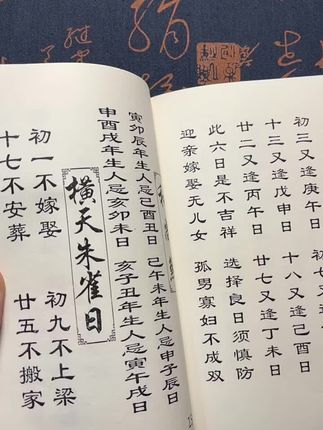 初三又庚午日
十三又戊申日　十八又己酉日
廿二又丙午日　廿七又丁未日
此六日是不吉祥　选择良日须慎防
迎亲嫁娶无儿女　孤男寡妇不成双
寅卯辰年生人忌己酉丑日　己午未年生人忌申子辰日
申酉戌年生人忌亥卯未日　亥子丑年生人忌寅午戌日
橫天朱雀日
初一不嫁娶　初九不上梁
十七不安葬　廿五不搬家